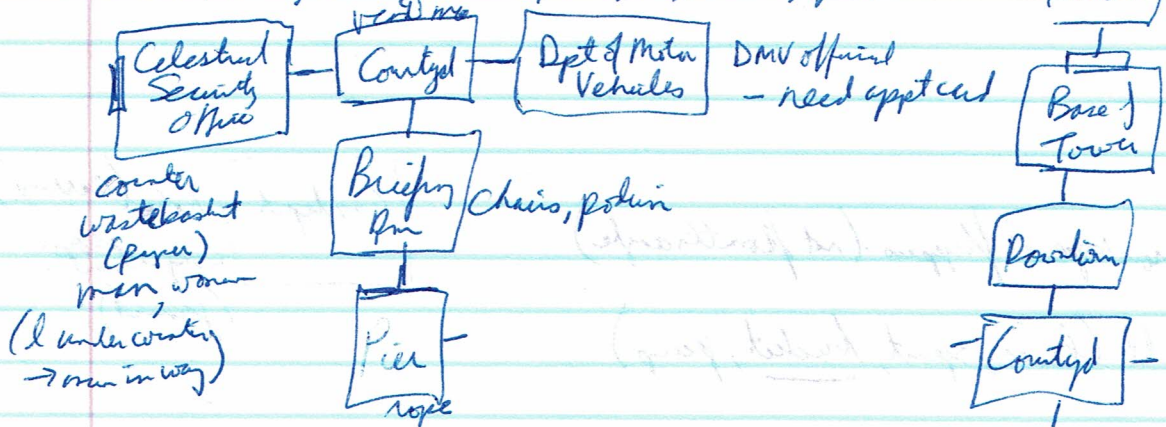 Celestial
Security
Office
Courtyd
Dpt of Motor
Vehicles
DMV official
- need appt card
Base of
Tower
counter
wastebasket
(paper)
man, woman
(l under counter
→ man in way)
Briefing
Rm
Chairs, podium
Downtown
Pier
rope
Courtyd